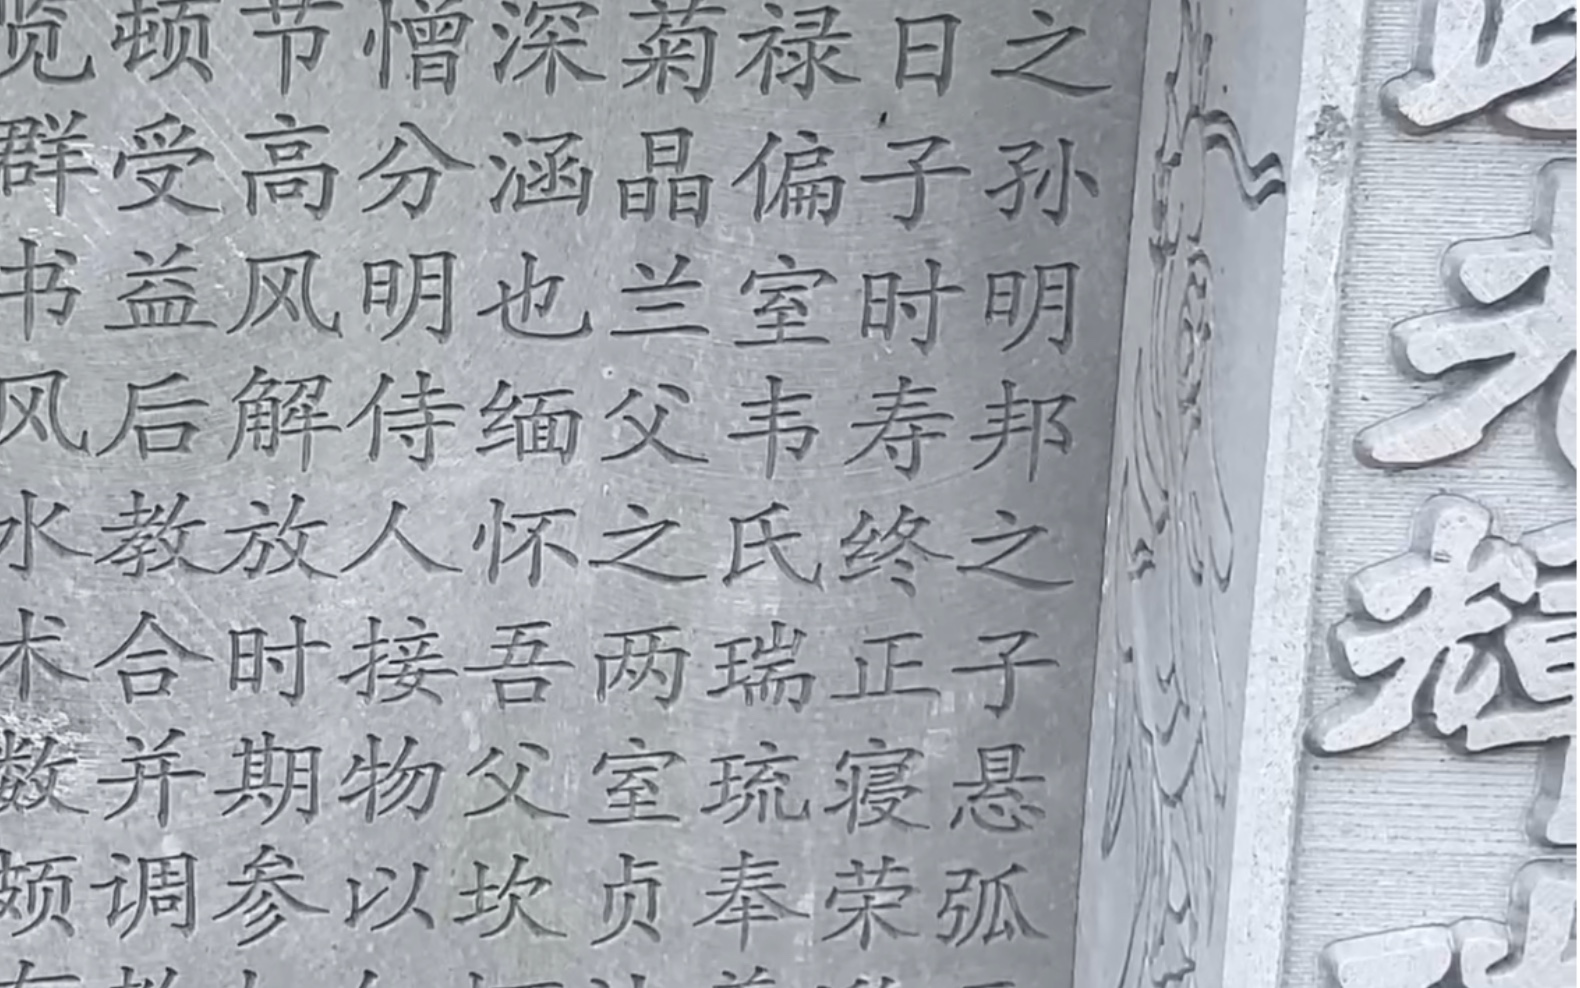 之孙明邦之子悬弧
日子时寿终正寝荣
禄偏室韦氏瑞琉奉
菊晶兰父之两室贞
深涵也缅怀吾父坎
憎分明侍人接物以
节高风解放时期参
顿受益后教合并调
览群书风水术数颇